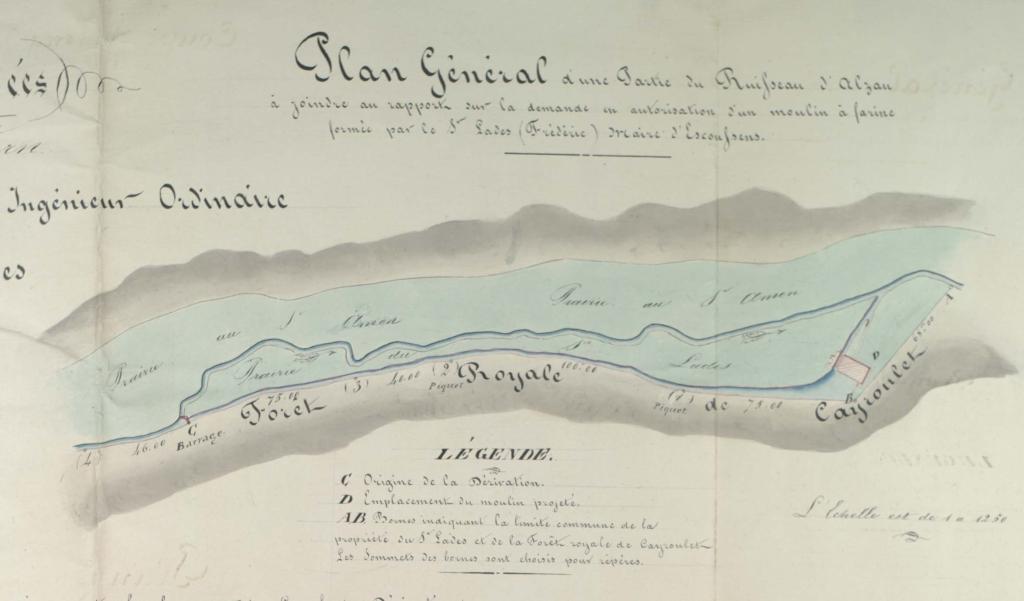 ées
Plan Général d'une Partie du Ruisseau d'Alzau
à joindre au rapport sur la demande en autorisation d'un moulin à farine
formée par le Sr Lades (Frédéric) Maire d'Escoussens.
Ingénieur Ordinaire
es
Prairie au Sr Amen
Prairie au Sr Amen
Prairie du Sr Lades
Forêt Royale de Cayroulet
(4) 46.00
C
Barrage.
75.00
(3) 40.00
(2)
Piquet
100.00
(1)
Piquet
75.00
B
D
60.00
A
LÉGENDE.
C Origine de la Dérivation.
D Emplacement du moulin projeté.
AB Bornes indiquant la limite commune de la
propriété du Sr Lades et de la Forêt royale de Cayroulet
Les Sommets des bornes sont choisis pour repères.
L'Echelle est de 1 a 1250